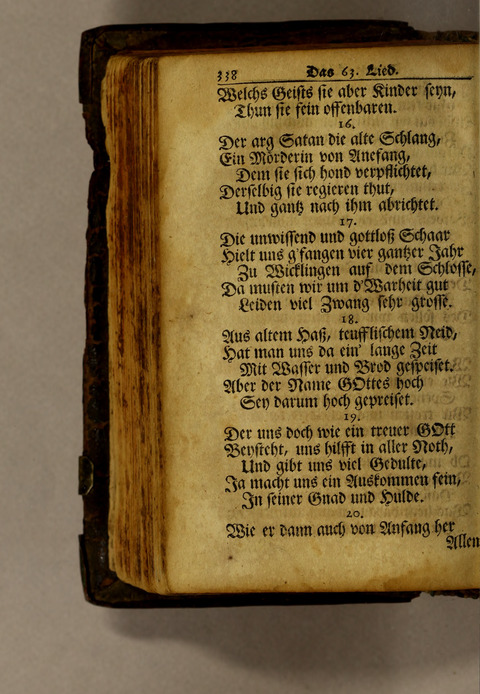 338 Das 63. Lied.
Welchs Geists sie aber Kinder seyn,
Thun sie fein offenbaren.
16.
Der arg Satan die alte Schlang,
Ein Mörderin von Anefang,
Dem sie sich hond verpflichtet,
Derselbig sie regieren thut,
Und gantz nach ihm abrichtet.
17.
Die unwissend und gottloß Schaar
Hielt uns g'fangen vier gantzer Jahr
Zu Wicklingen auf dem Schlosse,
Da musten wir um d'Warheit gut
Leiden viel Zwang sehr grosse.
18.
Aus altem Haß, teufflischem Neid,
Hat man uns da ein' lange Zeit
Mit Wasser und Brod gespeiset.
Aber der Name GOttes hoch
Sey darum hoch gepreiset.
19.
Der uns doch wie ein treuer GOtt
Beysteht, uns hilfft in aller Noth,
Und gibt uns viel Gedulte,
Ja macht uns ein Auskommen fein,
In seiner Gnad und Hulde.
20.
Wie er dann auch von Anfang her
Allen